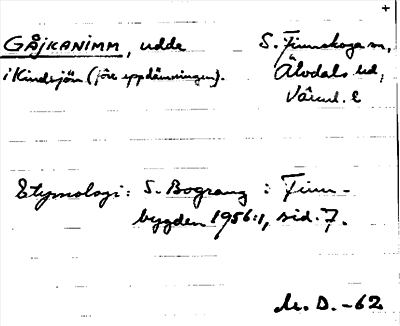 +
GÅJKANIMM, udde
i Kindsjön (före uppdämningen).
S. Finnskoga sn,
Älvdals hd,
Värml. l
Etymologi: S. Bograng i Finn-
bygden 1956:1, sid. 7.
M. D. -62